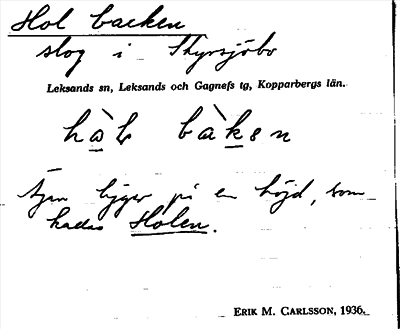 Hol backen
slog i Styrsjöbo
Leksands sn, Leksands och Gagnefs tg, Kopparbergs län.
hàl bàken
ligger på en höjd, som
kallas Holen.
ERIK M. CARLSSON, 1936.